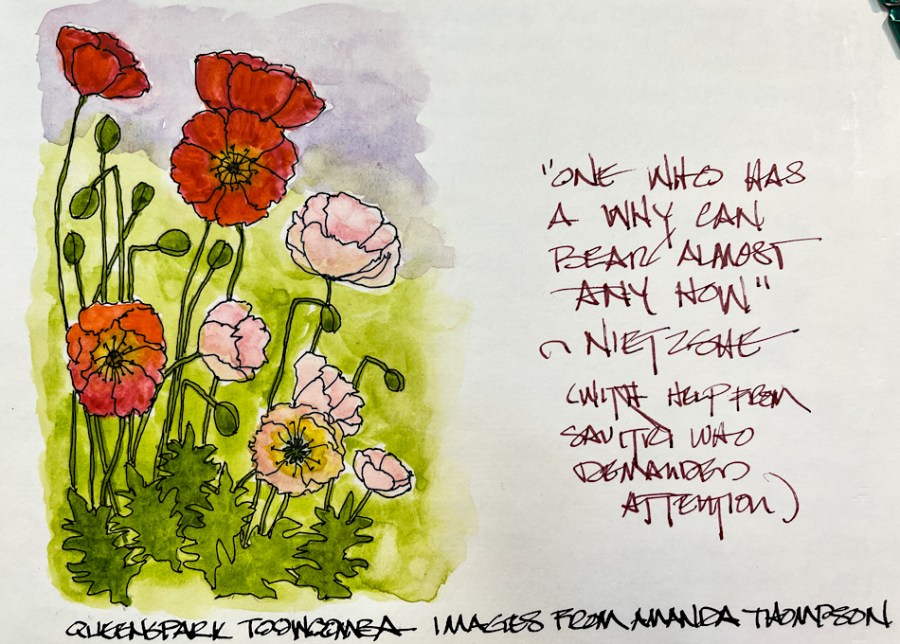 "ONE WHO HAS
A WHY CAN
BEAR ALMOST
ANY HOW"
~ NIETZSCHE
(WITH HELP FROM
SAVITRI WHO
DEMANDED
ATTENTION)
QUEENSPARK TOOWOOMBA IMAGES FROM AMANDA THOMPSON